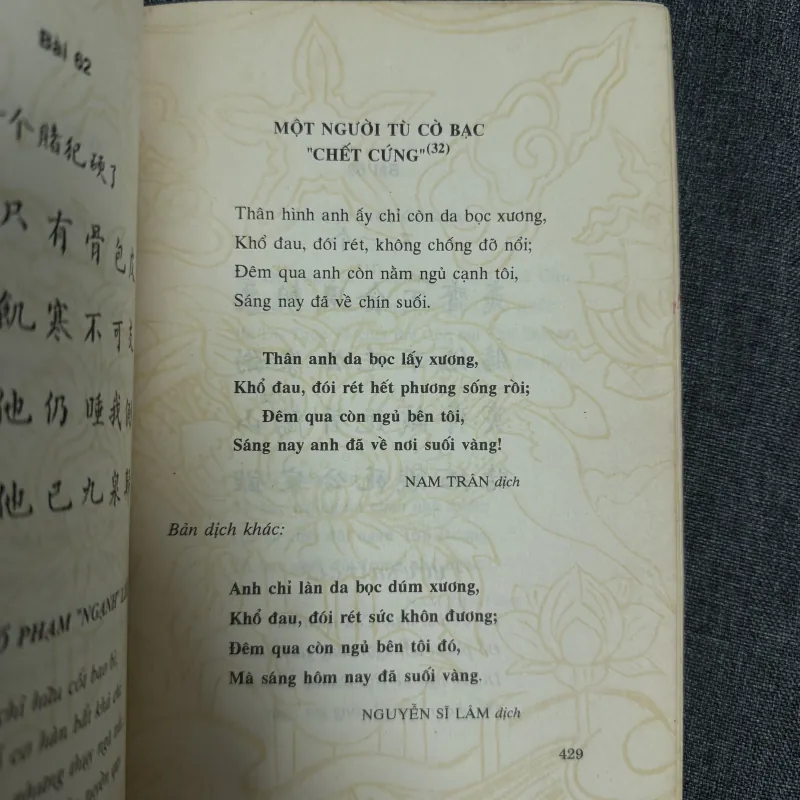 Bài 62
个 賭 犯 硬 了
只 有 骨 包 皮
飢 寒 不 可 支
他 仍 睡 我 側
他 已 九 泉 歸
PHẠM "NGẠNH"
chỉ hữu cốt bao bì
cơ hàn bất khả chi
MỘT NGƯỜI TÙ CỜ BẠC
"CHẾT CỨNG"(32)
Thân hình anh ấy chỉ còn da bọc xương,
Khổ đau, đói rét, không chống đỡ nổi;
Đêm qua anh còn nằm ngủ cạnh tôi,
Sáng nay đã về chín suối.
Thân anh da bọc lấy xương,
Khổ đau, đói rét hết phương sống rồi;
Đêm qua còn ngủ bên tôi,
Sáng nay anh đã về nơi suối vàng!
NAM TRÂN dịch
Bản dịch khác:
Anh chỉ làn da bọc dúm xương,
Khổ đau, đói rét sức khôn đương;
Đêm qua còn ngủ bên tôi đó,
Mà sáng hôm nay đã suối vàng.
NGUYỄN SĨ LÂM dịch
429